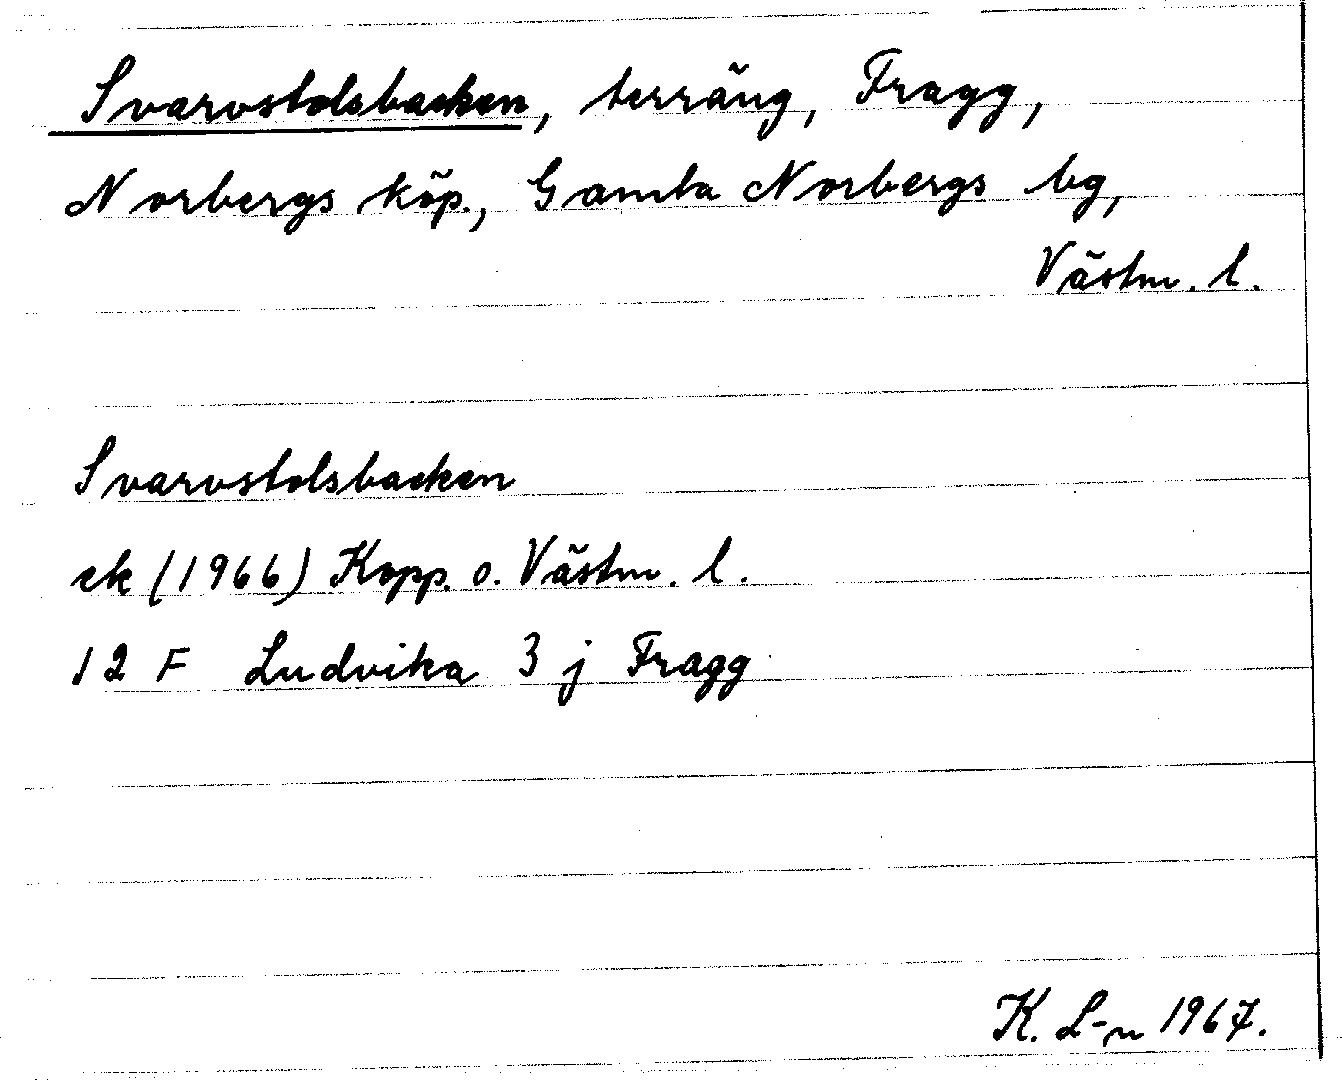 Svarvstolsbacken, terräng, Fragg,
Norbergs köp., Gamla Norbergs bg,
Västm. l.
Svarvstolsbacken
ek (1966) Kopp. o. Västm. l.
12 F Ludvika 3 j Fragg
K. L-n 1967.